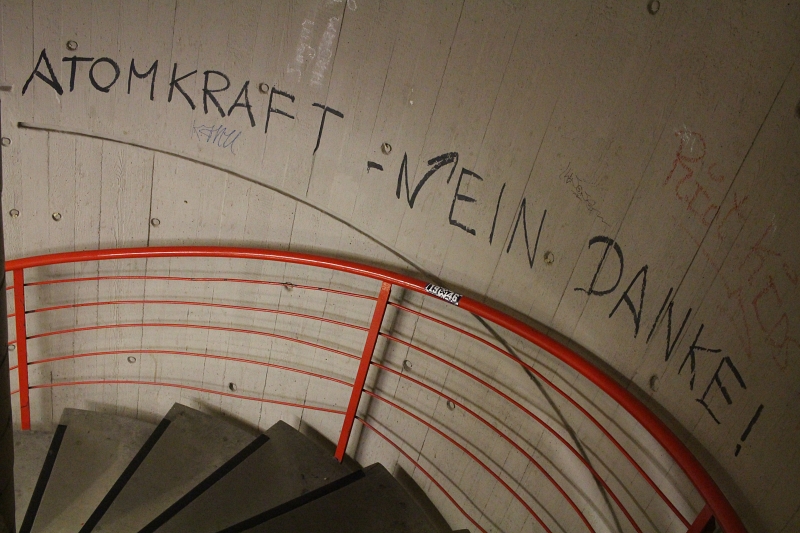 ATOMKRAFT - NEIN DANKE!